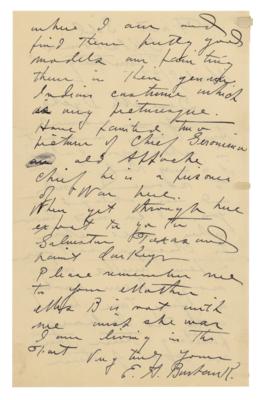 where I am and
find them pretty good
models am painting
them in their genuine
Indian costume which
is very picturesque.
Have painted two
picture of Chief Geronimo
an old Appache
chief he is a prisoner
of War here.
When get through here
expect to go to
Texas and
paint darkies
Please remember me
to your Mother
Mrs B is not with
me wish she was
I am living in the
Fort Very truly yours
E. A. Burbank.